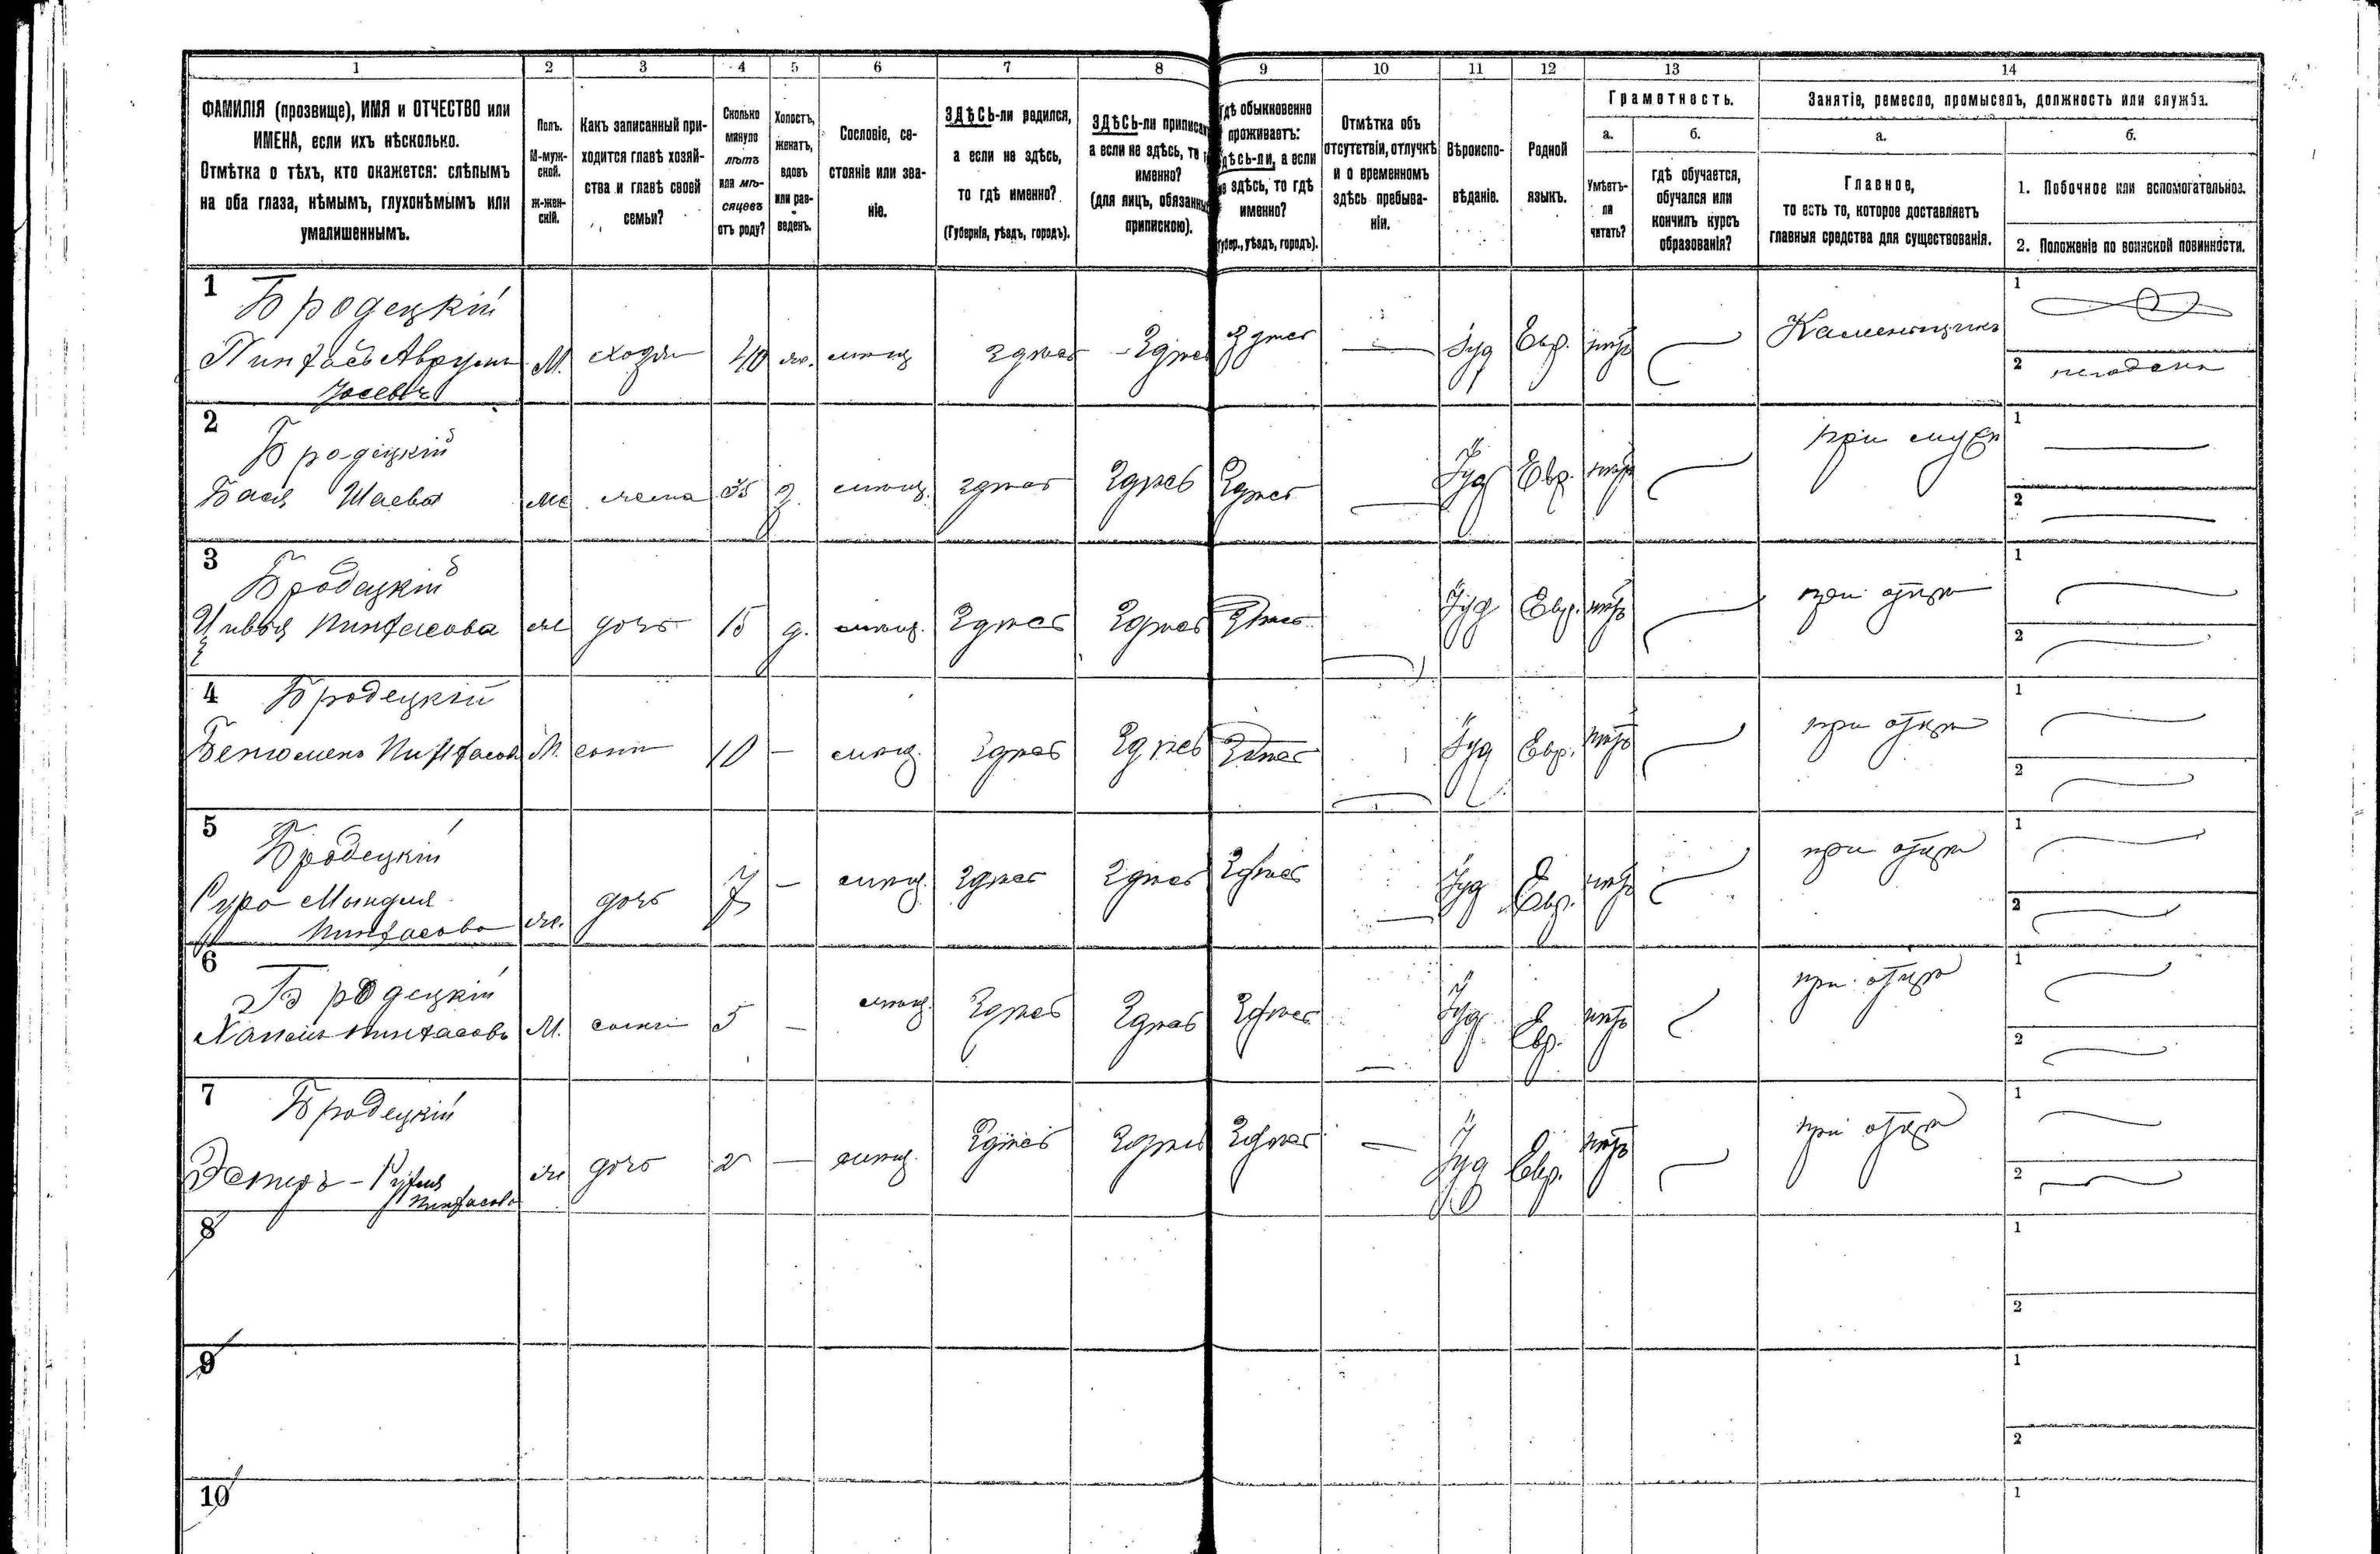 1 2 3 4 5 6 7 8 9 10 11 12 13 14
ФАМИЛІЯ (прозвище), ИМЯ и ОТЧЕСТВО или
ИМЕНА, если ихъ нѣсколько.
Отмѣтка о тѣхъ, кто окажется: слѣпымъ
на оба глаза, нѣмымъ, глухонѣмымъ или
умалишеннымъ.
Полъ.
М-муж-
ской.
ж-жен-
скій.
Какъ записанный при-
ходится главѣ хозяй-
ства и главѣ своей
семьи?
Сколько
минуло
лѣтъ
или мѣ-
сяцевъ
отъ роду?
Холостъ,
женатъ,
вдовъ
или раз-
веденъ.
Сословіе, со-
стояніе или зва-
ніе.
ЗДѢСЬ-ли родился,
а если не здѣсь,
то гдѣ именно?
(Губернія, уѣздъ, городъ).
ЗДѢСЬ-ли приписан
а если не здѣсь, то г
именно?
(для лицъ, обязанных
припискою).
Гдѣ обыкновенно
проживаетъ:
здѣсь-ли, а если
не здѣсь, то гдѣ
именно?
(губер., уѣздъ, городъ).
Отмѣтка объ
отсутствіи, отлучкѣ
и о временномъ
здѣсь пребыва-
ніи.
Вѣроиспо-
вѣданіе.
Родной
языкъ.
Грамотность.
а.
Умѣетъ-
ли
читать?
б.
гдѣ обучается,
обучался или
кончилъ курсъ
образованія?
Занятіе, ремесло, промыселъ, должность или служба.
а.
Главное,
то есть то, которое доставляетъ
главныя средства для существованія.
б.
1. Побочное или вспомогательное.
2. Положеніе по воинской повинности.
1 Бродецкій
Пинхасъ Аврумъ М. 40 ж. мѣщ здѣсь здѣсь здѣсь Іуд Евр. нѣтъ Каменьщикъ 1
Іосевъ 2
2 Бродецкій
Бася Шаева ж жена 35 з. мѣщ. здѣсь здѣсь здѣсь Іуд Евр. нѣтъ при муж 1
2
3 Бродецкій
Цивья Пинхасова ж дочь 15 д. мѣщ. здѣсь здѣсь здѣсь Іуд Евр. нѣтъ при отцѣ 1
2
4 Бродецкій
Бенюменъ Пинхасов М. сынъ 10 — мѣщ. здѣсь здѣсь здѣсь Іуд Евр. нѣтъ при отцѣ 1
2
5 Бродецкій
Сура Миндля ж. дочь 7 — мѣщ. здѣсь здѣсь здѣсь Іуд Евр. нѣтъ при отцѣ 1
Пинхасова 2
6 Бродецкій
Пинхасовъ М. сынъ 5 — мѣщ. здѣсь здѣсь здѣсь Іуд Евр. нѣтъ при отцѣ 1
2
7 Бродецкій
Эстеръ - ж дочь 2 — мѣщ. здѣсь здѣсь здѣсь — Іуд Евр. нѣтъ при отцѣ 1
Пинхасова 2
8 1
2
9 1
2
10 1